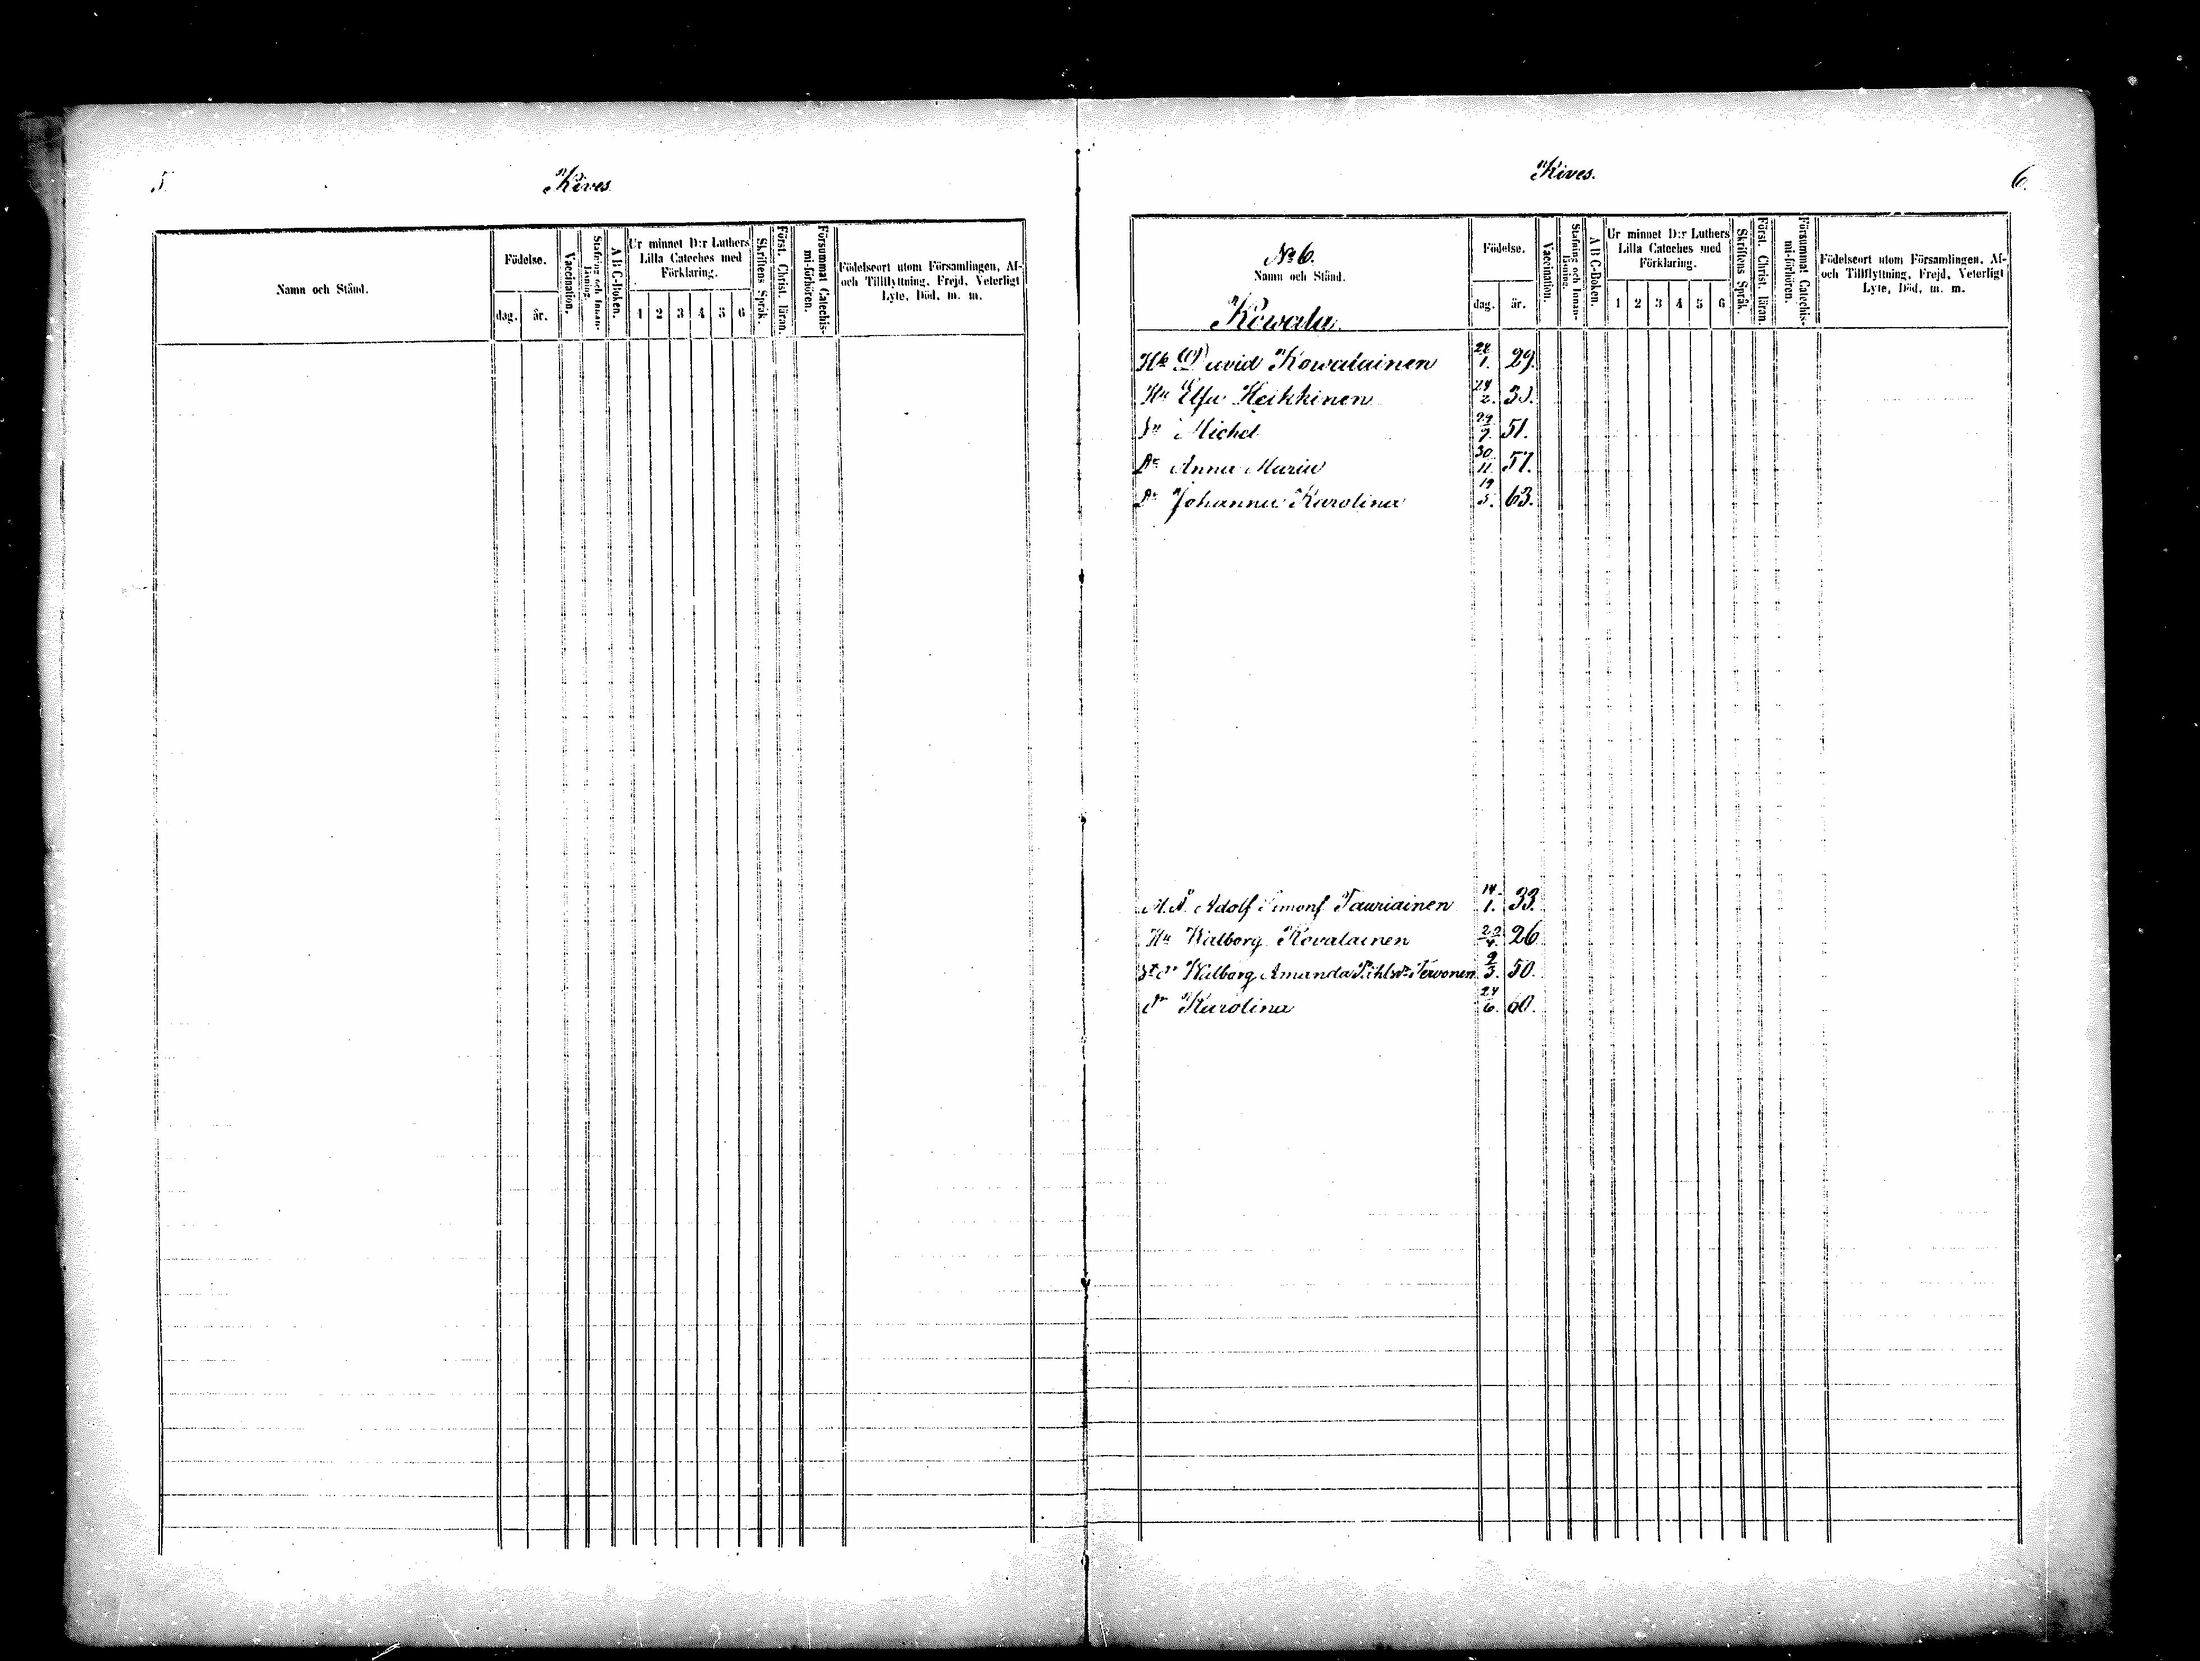 5.
Kives.
Namn och Stånd.
Födelse.
dag.
år.
Vaccination.
Stafning och Innan-
läsning.
A B C-Boken.
Ur minnet D:r Luthers
Lilla Cateches med
Förklaring.
1 2 3 4 5 6
Skriftens Språk.
Först. Christ. läran.
Försummat Catechis-
mi-förhören.
Födelseort utom Församlingen, Af-
och Tillflyttning, Frejd, Veterligt
Lyte, Död, m. m.
Kives.
6.
No 6.
Namn och Stånd.
Kowala.
Födelse.
dag.
år.
Vaccination.
Stafning och Innan-
läsning.
A B C-Boken.
Ur minnet D:r Luthers
Lilla Cateches med
Förklaring.
1 2 3 4 5 6
Skriftens Språk.
Först. Christ. läran.
Försummat Catechis-
mi-förhören.
Födelseort utom Församlingen, Af-
och Tillflyttning, Frejd, Veterligt
Lyte, Död, m. m.
David Kowalainen 28/1. 29.
Hu Elsa Heikkinen 24/2.
Sn Michel 51.
Dr Anna Maria 30/11 57.
Dr Johanna Karolina 19/5. 63.
Adolf Simonss Tauriainen 14/1. 33.
Hu Walborg Kovalainen 26.
Walborg Amanda Tervonen 9/3. 50.
Karolina 24/6. 60.